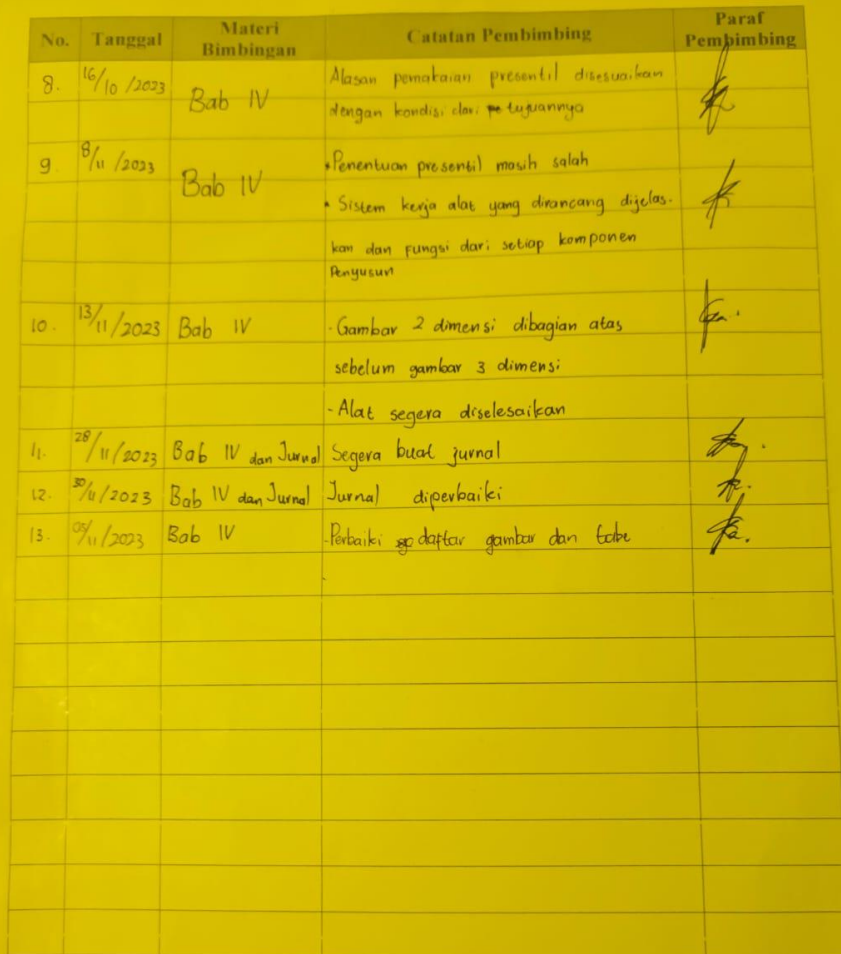 No. Tanggal Materi Bimbingan Catatan Pembimbing Paraf Pembimbing
8. 16/10/2023 Bab IV Alasan pemakaian presentil disesuaikan
dengan kondisi dari tujuannya
9. 8/11/2023 Bab IV • Penentuan presentil masih salah
• Sistem kerja alat yang dirancang dijelas-
kan dan fungsi dari setiap komponen
Penyusun
10. 13/11/2023 Bab IV - Gambar 2 dimensi dibagian atas
sebelum gambar 3 dimensi
- Alat segera diselesaikan
11. 28/11/2023 Bab IV dan Jurnal Segera buat jurnal
12. 30/11/2023 Bab IV dan Jurnal Jurnal diperbaiki
13. 03/11/2023 Bab IV - Perbaiki daftar gambar dan tabe